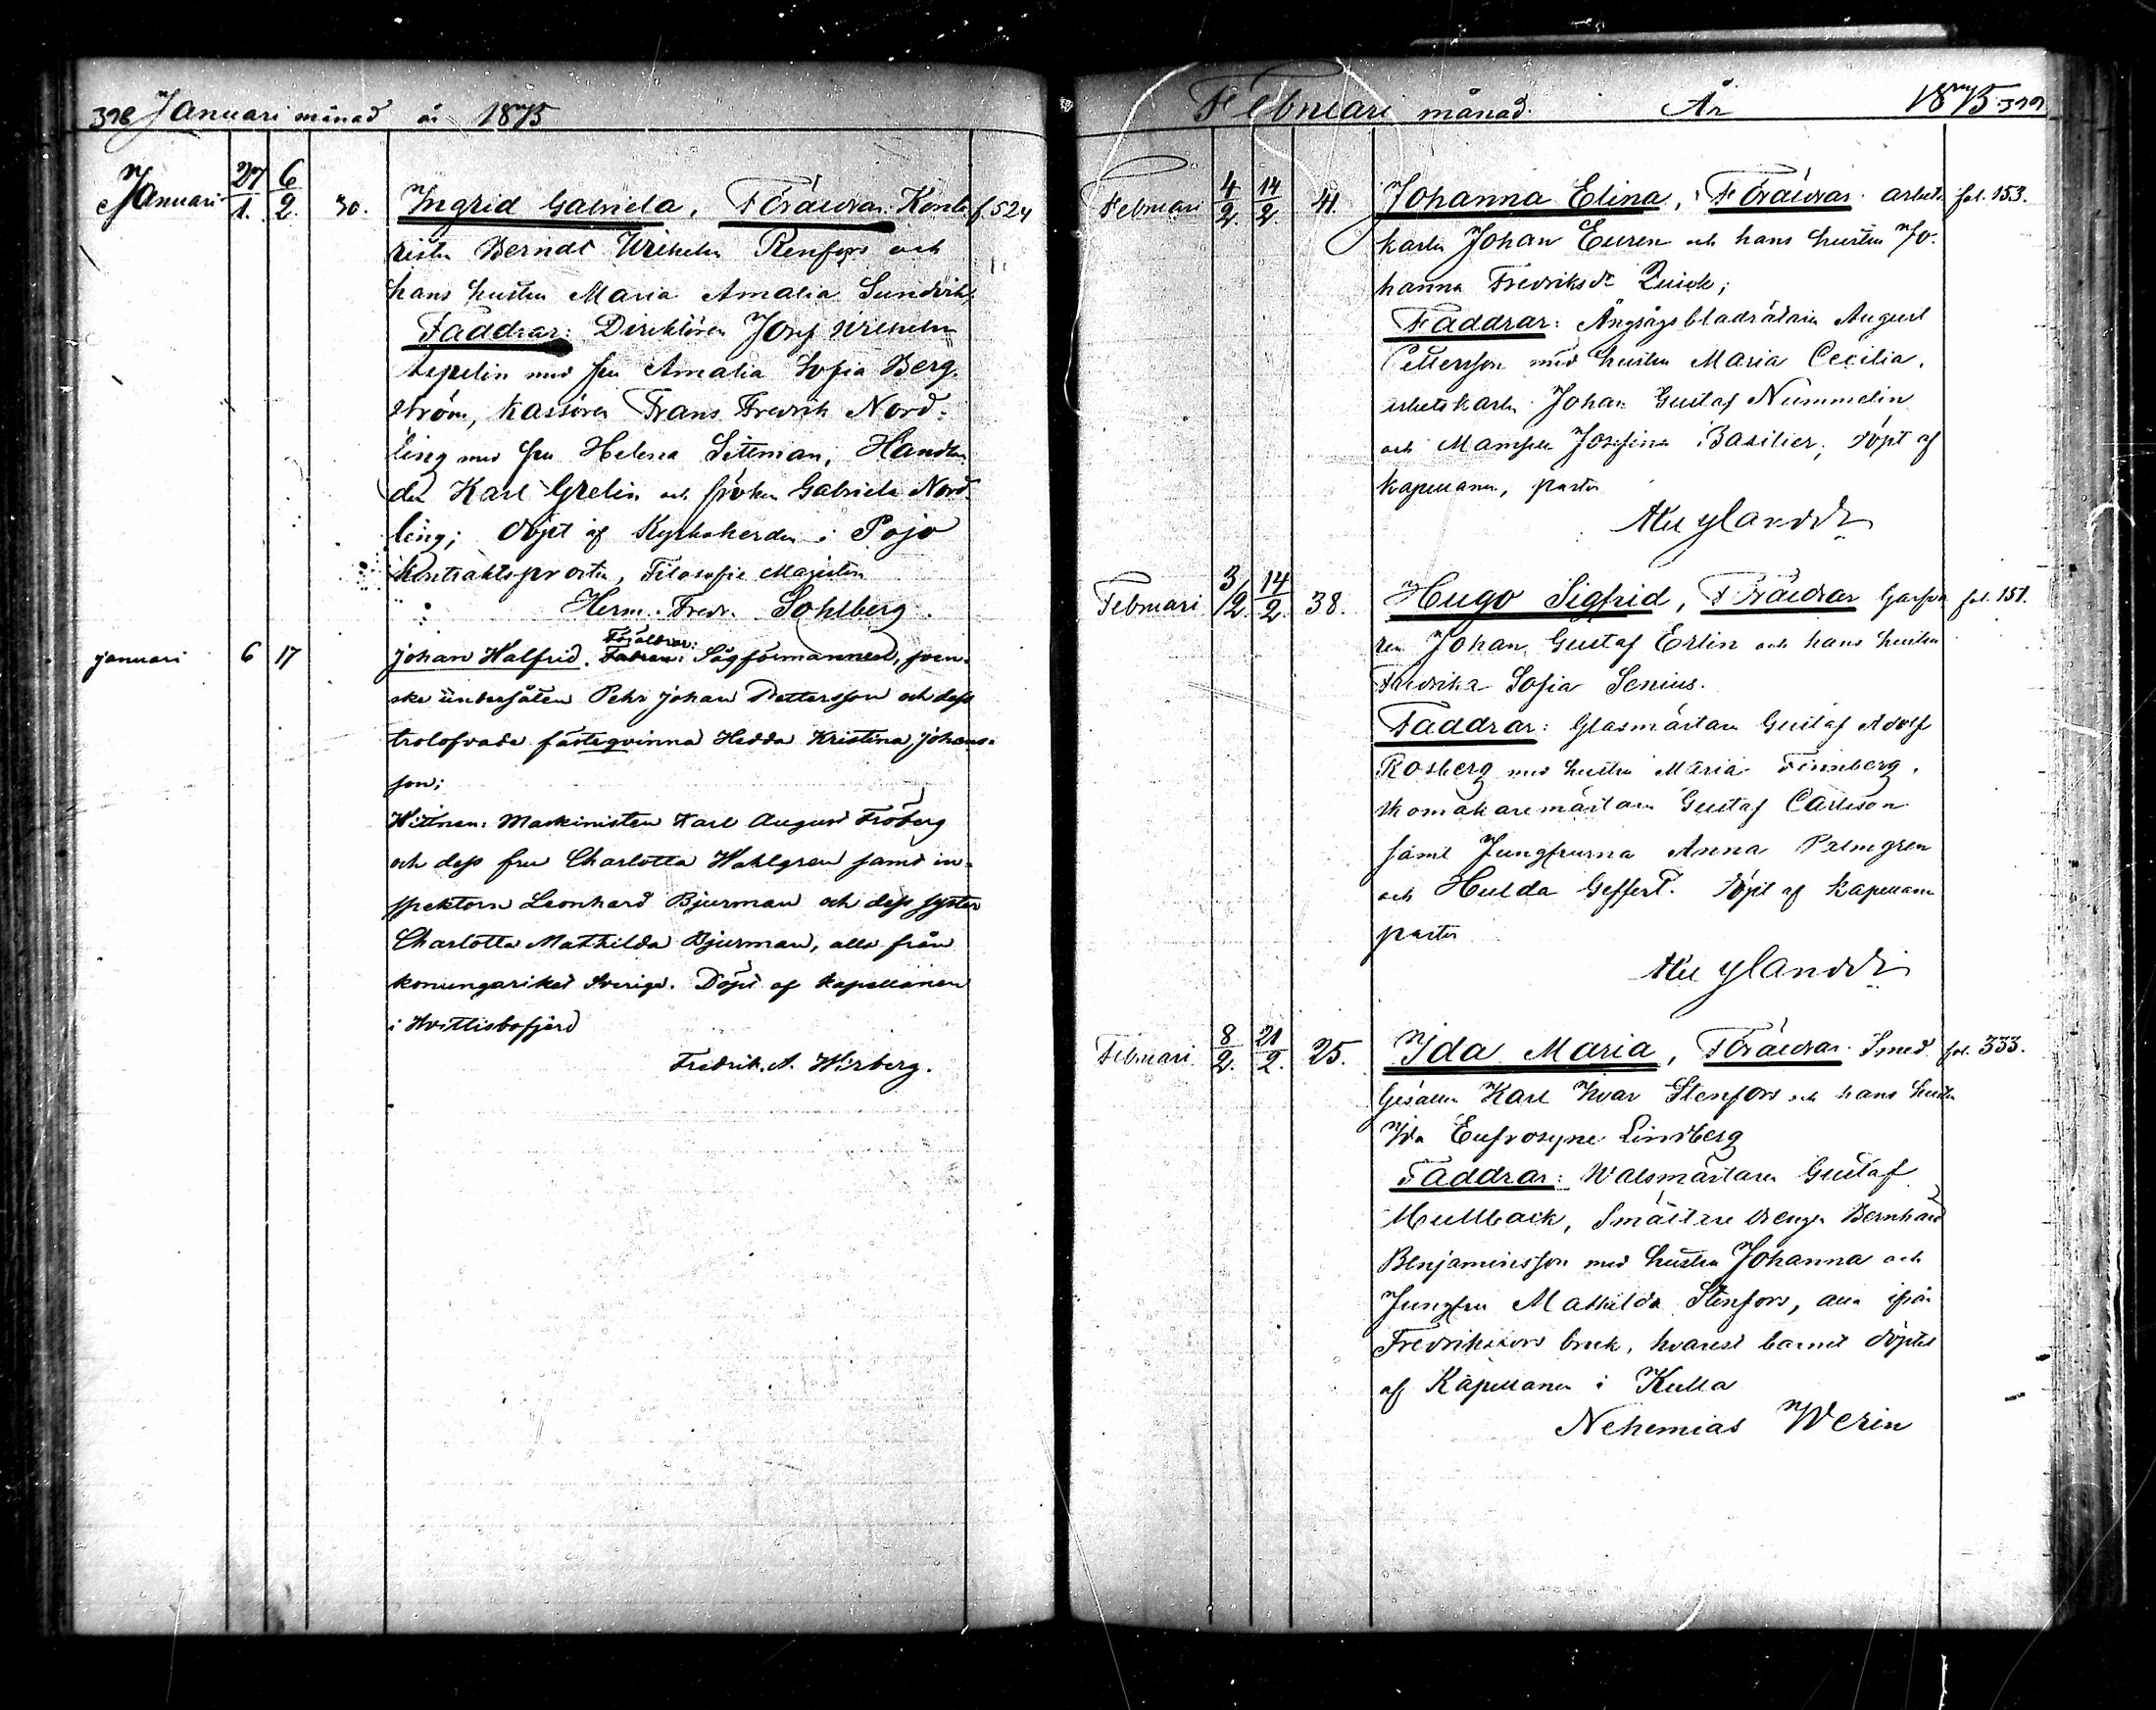 398 Januari månad år 1875
Januari 27/1. 6/2. 30. Ingrid Gabriela, Föräldrar: Konto- f. 524
risten Berndt Wilhelm Renfors och
hans hustru Maria Amalia Sundvik.
Faddrar: Direktören Josef Wilhelm
Lepelin med fru Amalia Sofia Berg-
ström, Kassören Frans Fredrik Nord-
ling med fru Helena Litman, Handlan-
den Karl Grelin och fröken Gabriela Nord-
ling; döpt af Kyrkoherden i Pojo
Kontraktsprosten, Filosofie Magistern
Herm. Fredr. Sohlberg.
Föräldrar:
januari 6 17 Johan Halfrid. Sågförmannen, sven-
ske undersåten Pehr Johan Pettersson och dess
trolofvade fästeqvinna Hedda Kristina Johans-
son;
Vittnen: Maskinisten Karl August Fröberg
och dess fru Charlotta Wahlgren samt in-
spektorn Leonhard Bjurman och dess syster
Charlotta Mathilda Bjurman, alla från
konungariket Sverige. Döpt af kapellanen
i Hvittisbofjerd
Fredrik. A. Wirberg.
Februari månad. År 1875 399
Februari 4/2. 14/2. 41. Johanna Elina, Föräldrar: arbets- fol. 153.
karln Johan Euren och hans hustru Jo-
hanna Fredriksdr Quick;
Faddrar: Ångsågsbladrätaren August
Pettersson med hustru Maria Cecilia,
arbetskarln Johan Gustaf Nummelin
och Mamsell Josefina Basilier, döpt af
Kapellanen, pastor
Nylander
Februari 3/2. 14/2. 38. Hugo Sigfrid, Föräldrar Garfva- fol. 151.
ren Johan Gustaf Erlin och hans hustru
Fredrika Sofia Senius.
Faddrar: Glasmästaren Gustaf Adolf
Rosberg med hustru Maria Finnberg,
skomakaremästaren Gustaf Carlsson
samt Jungfrurna Anna Palmgren
och Hulda Geffert. Döpt af Kapellanen
pastor
Nylander
Februari 8/2. 21/2. 25. Ida Maria, Föräldrar: Smed- fol. 333.
Gesällen Karl Ivar Stenfors och hans hustru
Ida Eufrosyne Lindberg
Faddrar: Walsmästaren Gustaf
Mullback, Smältaredrengen Bernhard
Benjaminsson med hustru Johanna och
Jungfru Mathilda Stenfors, alla ifrån
Fredriksfors bruk, hvarest barnet döptes
af Kapellanen i Kulla
Nehemias Werin